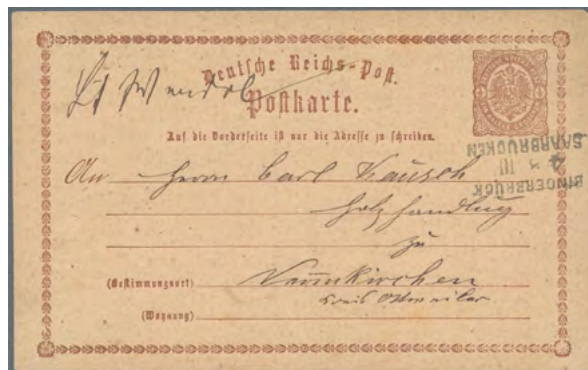 St Wendel
Deutsche Reichs-Post.
Postkarte.
Auf die Vorderseite ist nur die Adresse zu schreiben.
BINGERBRÜCK
4 3 III
SAARBRÜCKEN
An Herrn Carl Kausch
Holzhandlug
zu
(Bestimmungsort) Neunkirchen
Kreis Ottweiler
(Wohnung)